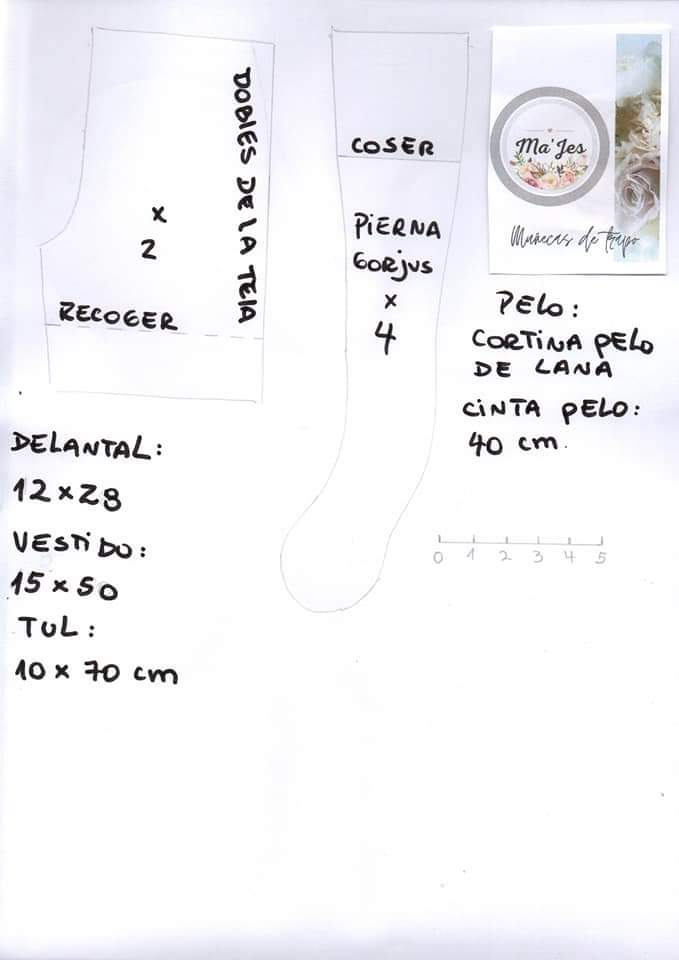 DOBLES DE LA TELA
x
2
RECOGER
COSER
PIERNA
GORJUS
x
4
Ma'Jes
Muñecas de trapo
PELO:
CORTINA PELO
DE LANA
CINTA PELO:
40 cm.
DELANTAL:
12 x 28
VESTIDO:
15 x 50
TUL:
10 x 70 cm
0 1 2 3 4 5